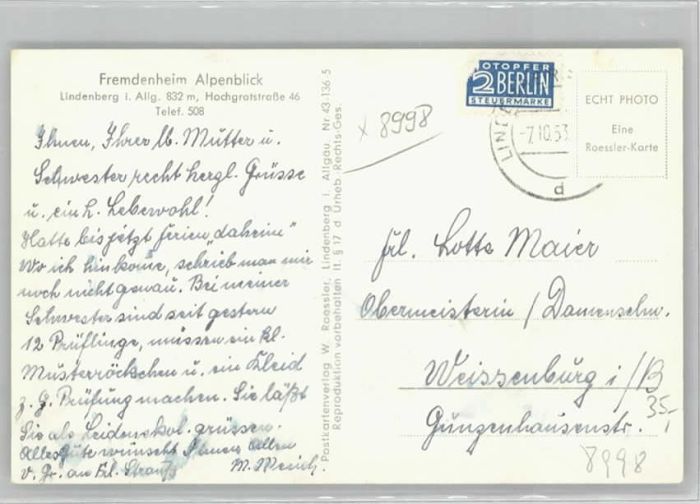 Fremdenheim Alpenblick
Lindenberg i. Allg. 832 m, Hochgratstraße 46
Telef. 508
Ihnen, Ihrer lb. Mutter u.
Schwester recht herzl. Grüsse
u. ein h. Lebewohl!
Hatte bis jetzt Ferien „daheim"
Wo ich hinkome, schrieb man mir
noch nicht genau. Bei meiner
Schwester sind seit gestern
12 Prüflinge, müssen ein kl.
Musterröckchen u. ein Kleid
z. g. Prüfung machen. Sie läßt
Sie als Leidenskol. grüssen.
Alles Gute wünscht Ihnen Allen
v. Gr. an Frl. Strauß M.
Postkartenverlag W. Roessler, Lindenberg i. Allgäu. Nr 43 136 5
Reproduktion vorbehalten lt. § 17 d Urheb.-Rechts-Ges.
x 8998
NOTOPFER
2 BERLIN
STEUERMARKE
-7.10.53
d
ECHT PHOTO
Eine
Roessler-Karte
Frl. Lotte Maier
Obermeisterin / Damenschn.
Weissenburg i/B
Gunzenhausenstr.
35,-
8998